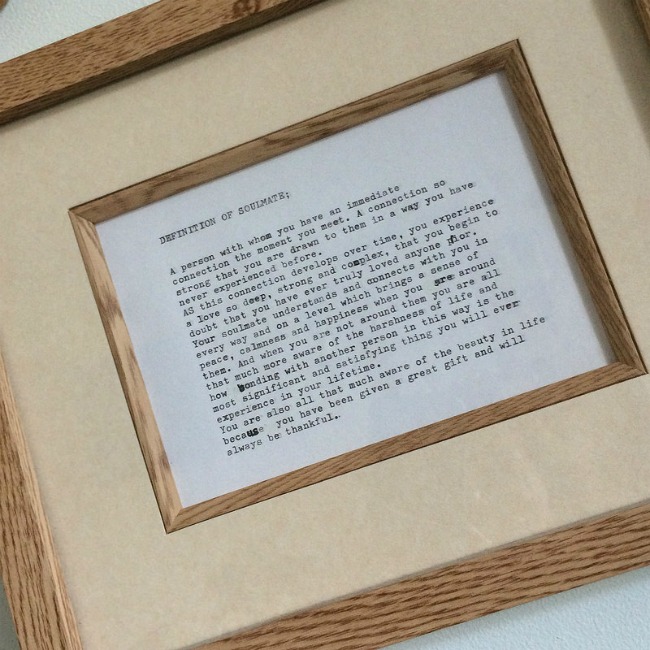 DEFINITION OF SOULMATE;
A person with whom you have an immediate
connection the moment you meet. A connection so
strong that you are drawn to them in a way you have
never experienced before.
AS this connection develops over time, you experience
a love so deep, strong and complex, that you begin to
doubt that you have ever truly loved anyone prior.
Your soulmate understands and connects with you in
every way and on a level which brings a sense of
peace, calmness and happiness when you are around
them. And when you are not around them you are all
that much more aware of the harshness of life and
how bonding with another person in this way is the
most significant and satisfying thing you will ever
experience in your lifetime.
You are also all that much aware of the beauty in life
because you have been given a great gift and will
always be thankful.